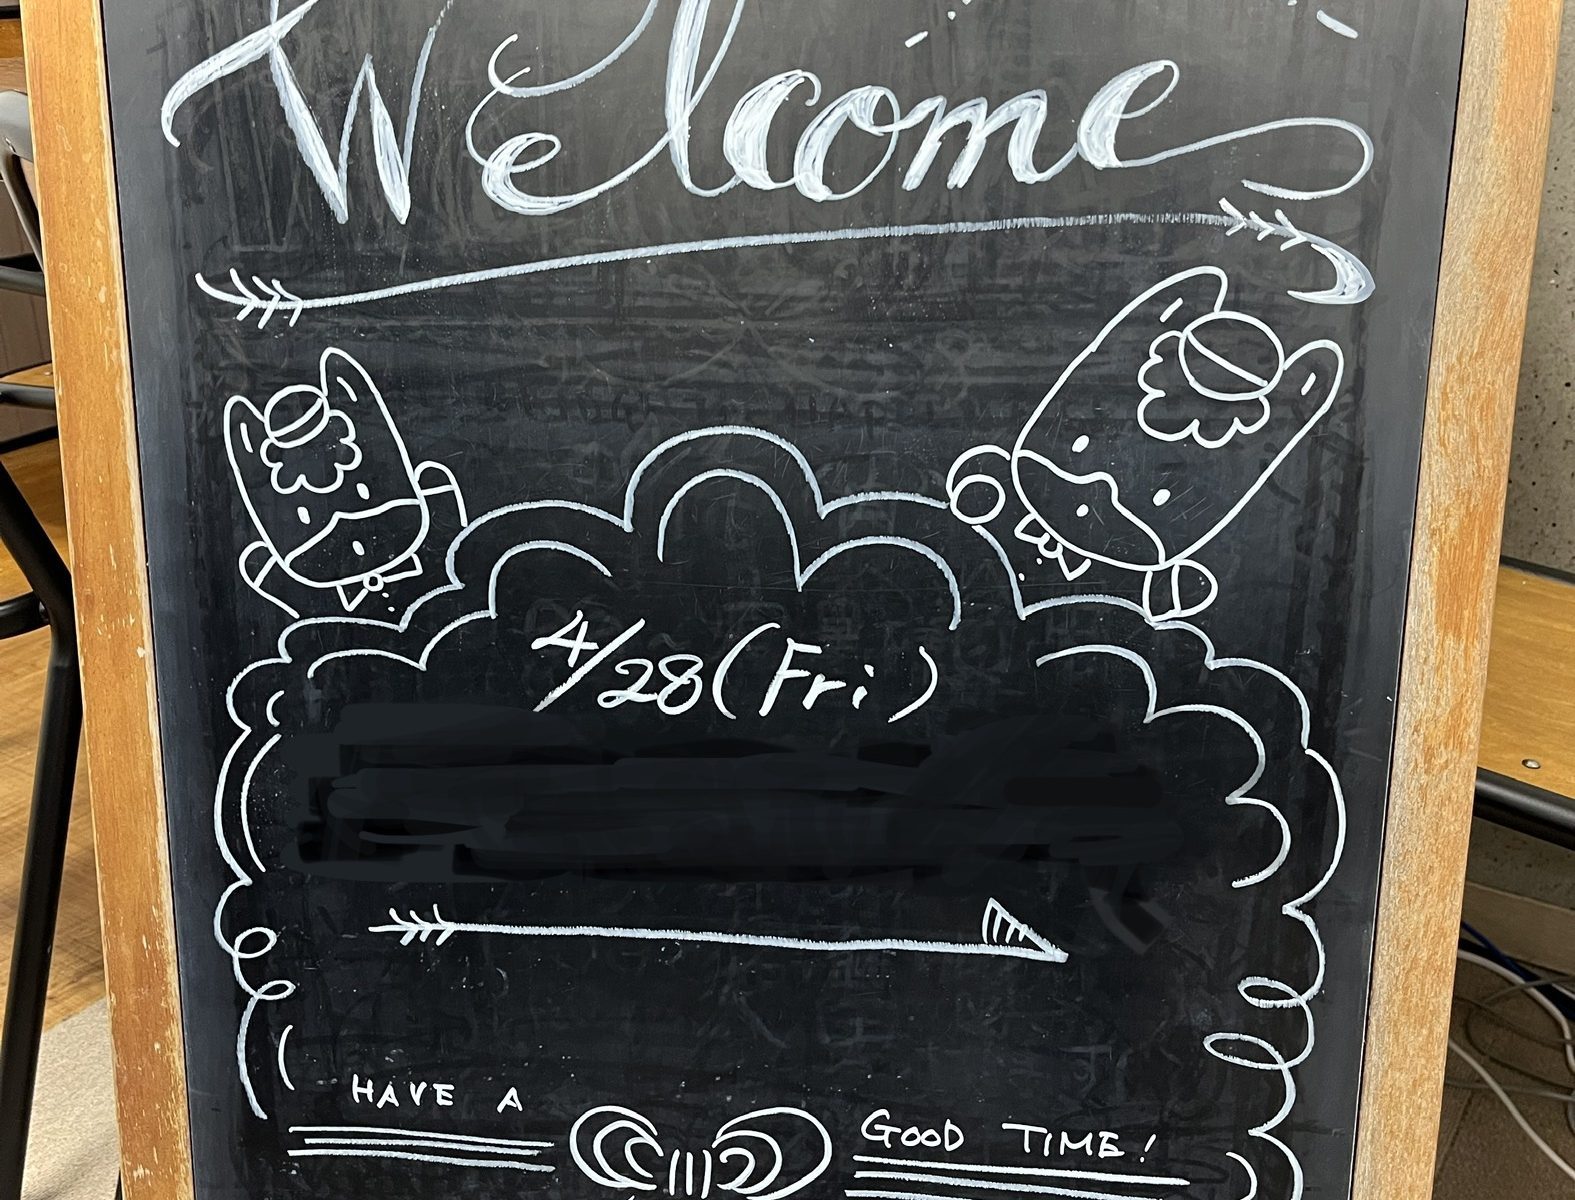 Welcome
4/28(Fri)
HAVE A GOOD TIME!